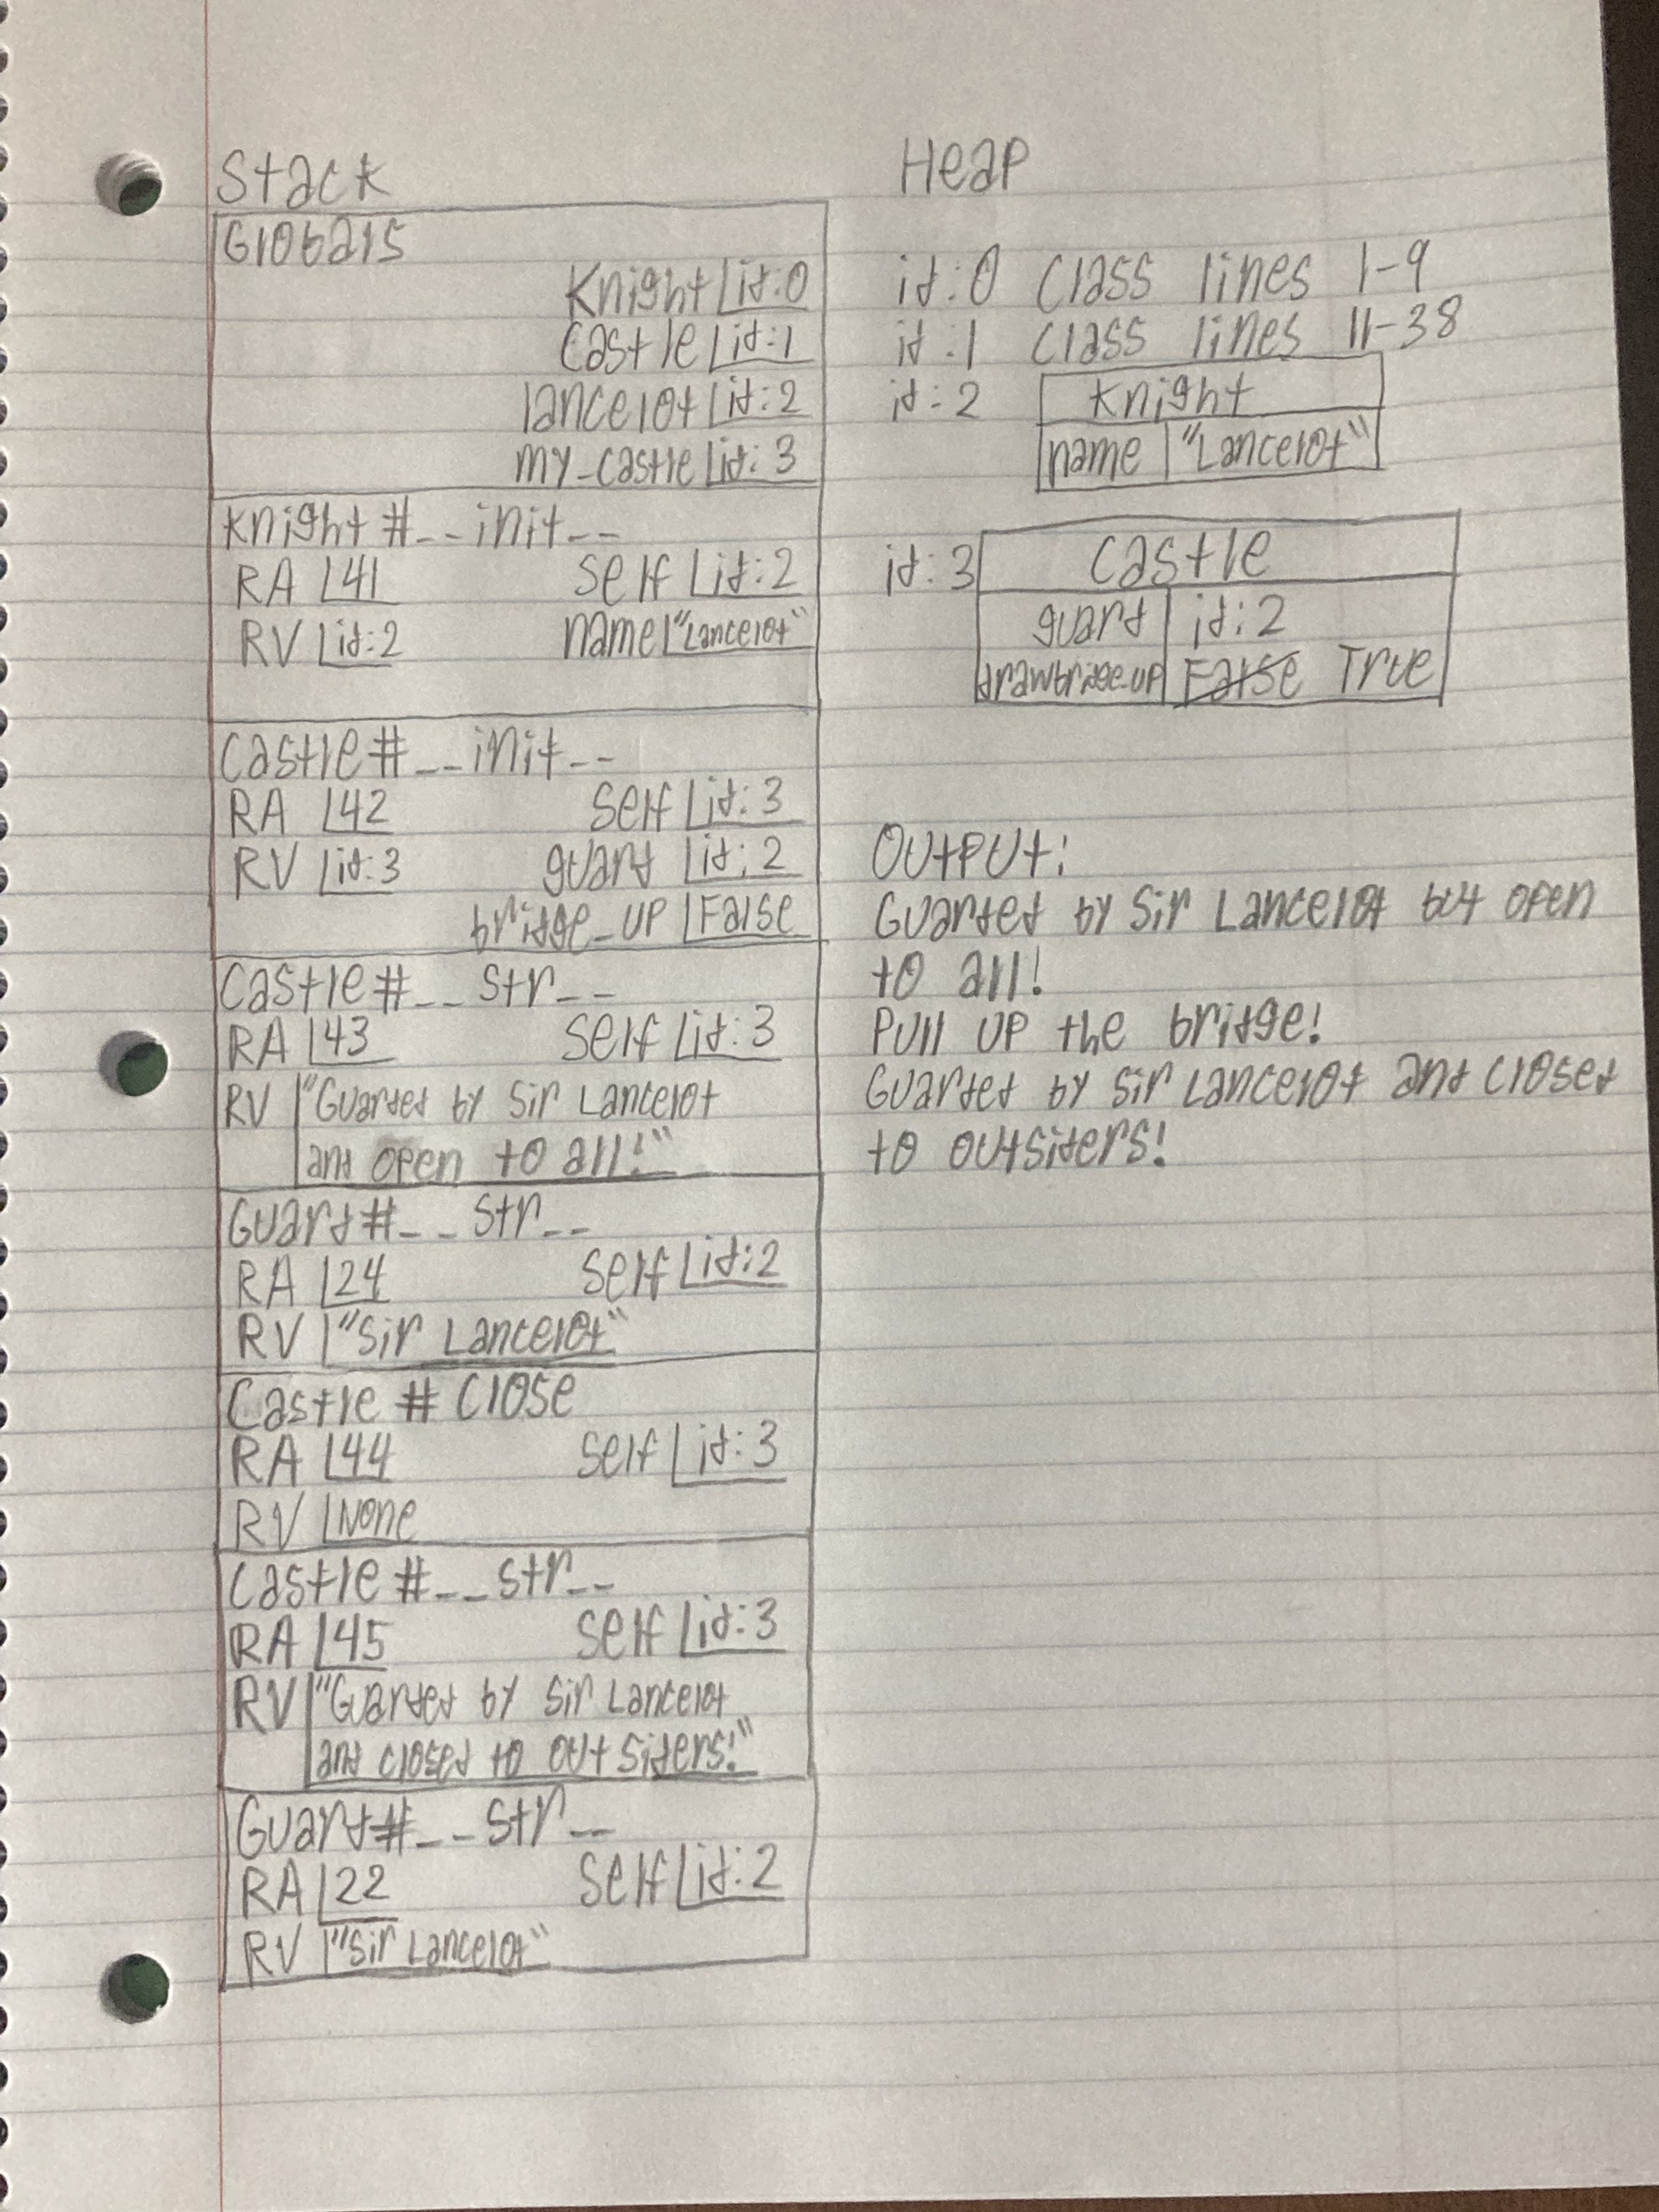 Stack
Globals
Knight id:0
Castle id:1
lancelot id:2
my_castle id:3
Knight #__init__
RA 41 self id:2
RV id:2 name "Lancelot"
Castle #__init__
RA 42 self id:3
RV id:3 guard id:2
bridge_up False
Castle #__str__
RA 43 self id:3
RV "Guarded by Sir Lancelot
and open to all!"
Guard #__str__
RA 24 self id:2
RV "Sir Lancelot"
Castle # close
RA 44 self id:3
RV None
Castle #__str__
RA 45 self id:3
RV "Guarded by Sir Lancelot
and closed to outsiders!"
Guard #__str__
RA 22 self id:2
RV "Sir Lancelot"
Heap
id:0 Class lines 1-9
id:1 Class lines 11-38
id:2 Knight
name "Lancelot"
id:3 Castle
guard id:2
drawbridge_up False True
Output:
Guarded by Sir Lancelot but open
to all!
Pull up the bridge!
Guarded by Sir Lancelot and closed
to outsiders!